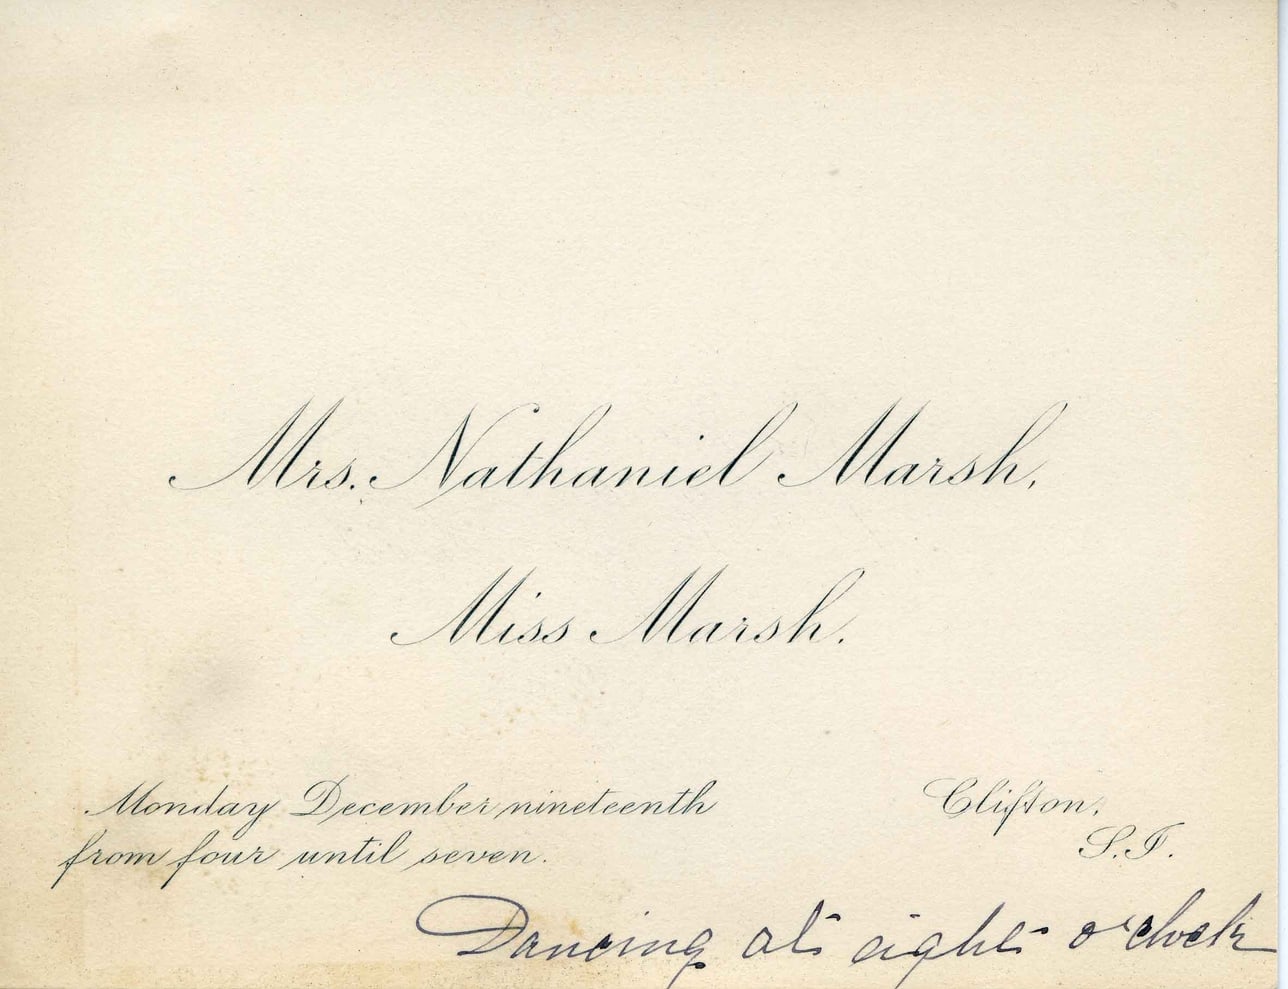 Mrs. Nathaniel Marsh,
Miss Marsh.
Monday December nineteenth
from four until seven.
Clifton,
S.I.
Dancing at eight o'clock